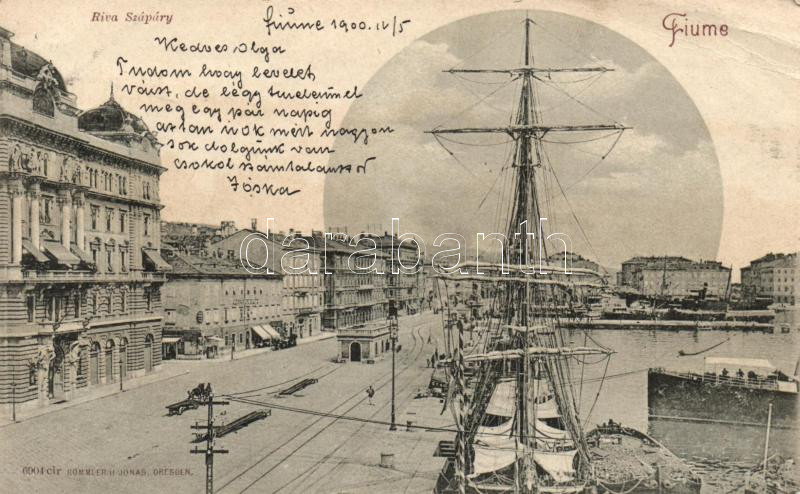 Riva Szápáry
Fiume 1900. IV/5
Fiume
Kedves Olga
Tudom hogy levelet
vársz, de légy türelemmel
még egy pár napig
aztan írok mert nagyon
sok dolgunk van
csokol számtalanszor
Jóska
darabanth
6904 clr RÖMMLER & JONAS, DRESDEN.